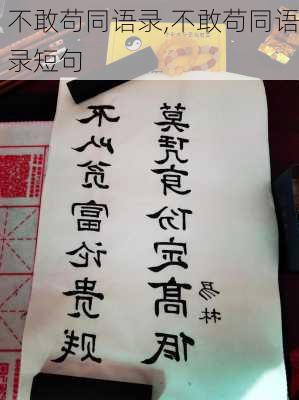 不敢苟同语录,不敢苟同语
录短句
不以贫富论贵贱
莫凭身份定高低
易林